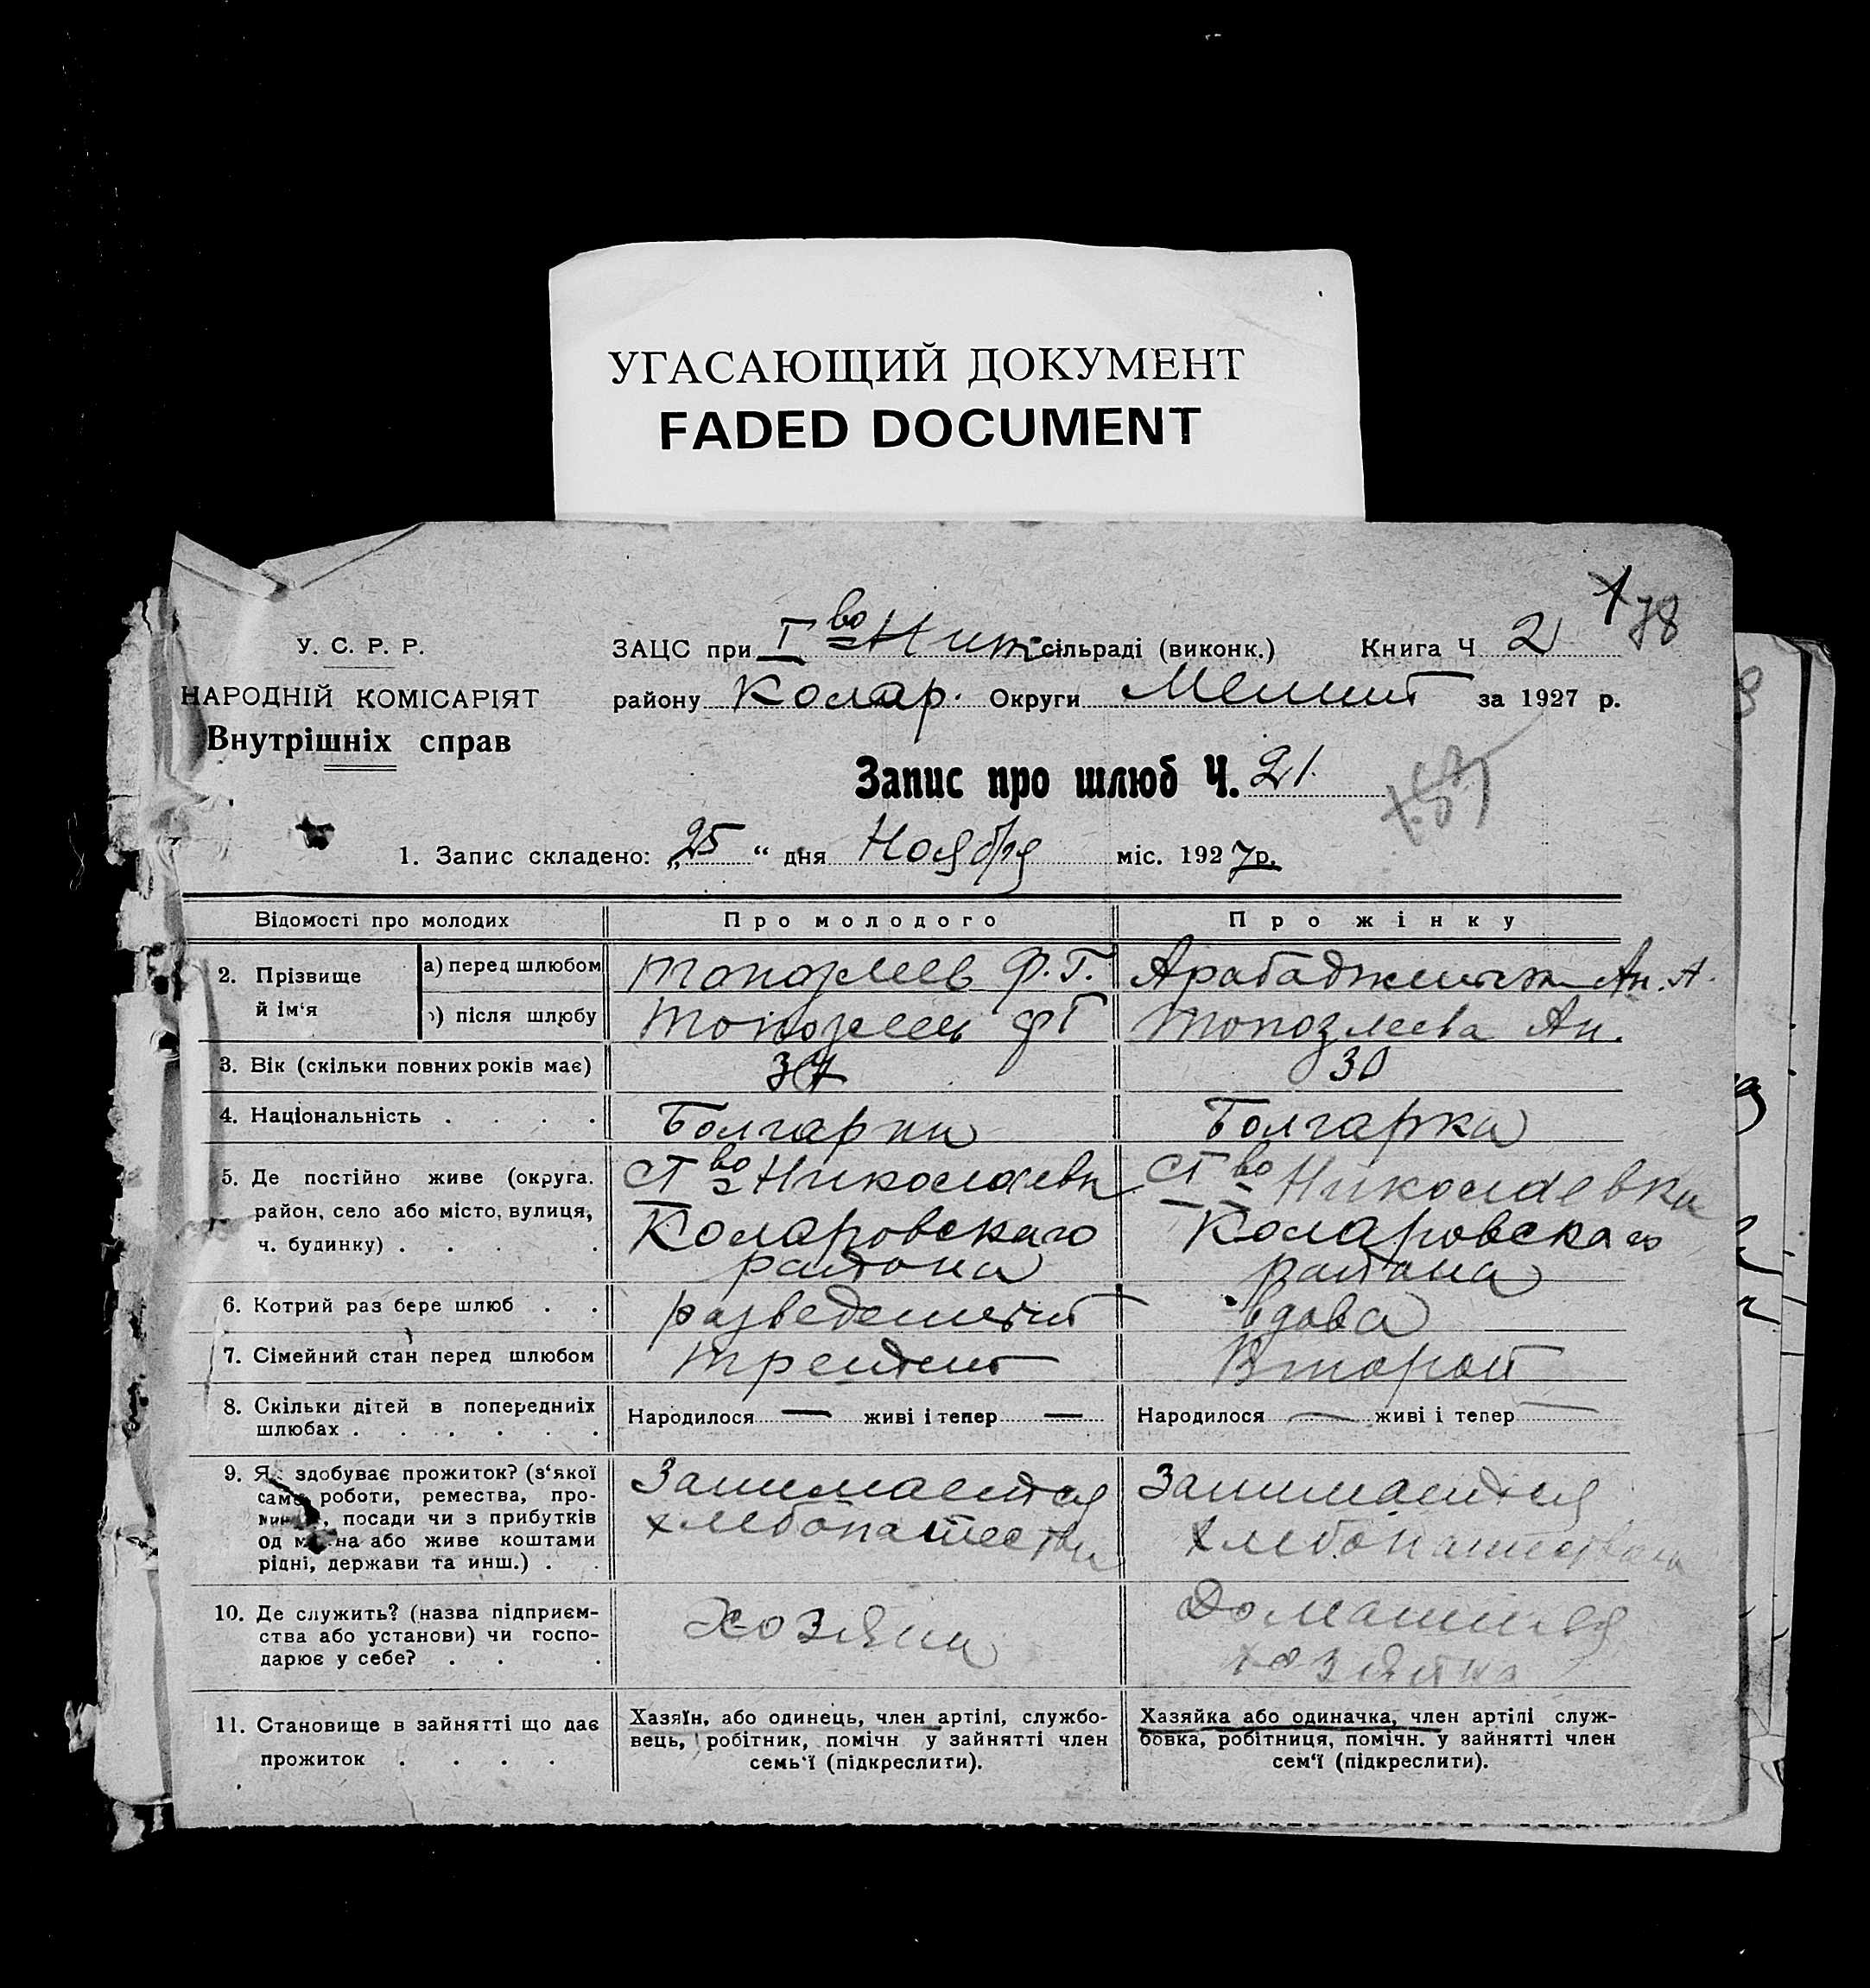 УГАСАЮЩИЙ ДОКУМЕНТ
FADED DOCUMENT
78
У. С. Р. Р.
НАРОДНІЙ КОМІСАРІЯТ
Внутрішніх справ
ЗАЦС при I во сільраді (виконк.) Книга Ч 2
району Колар. Округи Мелит за 1927 р.
Запис про шлюб Ч. 21.
1. Запис складено: „25 “ дня Ноября міс. 1927 р.
Відомості про молодих Про молодого Про жінку
2. Прізвище й ім‘я
а) перед шлюбом Топозлеев Ф. Г. Ан. А.
) після шлюбу Топозлеев ФГ Топозлеева Ан.
3. Вік (скільки повних років має) 30
4. Національність . . . . Болгарин Болгарка
5. Де постійно живе (округа.
район, село або місто, вулиця,
ч. будинку) . . . .
во Николаевк
Коларовскаго
района
во Николаевка
Коларовскаго
района
6. Котрий раз бере шлюб . . разведенный вдова
7. Сімейний стан перед шлюбом третий Второй
8. Скільки дітей в попередниіх
шлюбах . . . . . .
Народилося — живі і тепер —
Народилося — живі і тепер —
9. Як здобуває прожиток? (з‘якої
саме роботи, ремества, про-
, посади чи з прибутків
од на або живе коштами
рідні, держави та инш.) . .
Занимается
хлебопашеством
Занимается
хлебопашеством
10. Де служить? (назва підприєм-
ства або установи) чи госпо-
дарює у себе? . . .
Хозяин
Домашняя
хозяйка
11. Становище в зайнятті що дає
прожиток . . . .
Хазяїн, або одинець, член артілі, службо-
вець, робітник, помічн у зайнятті член
семь‘ї (підкреслити).
Хазяйка або одиначка, член артілі служ-
бовка, робітниця, помічн. у зайнятті член
сем‘ї (підкреслити).